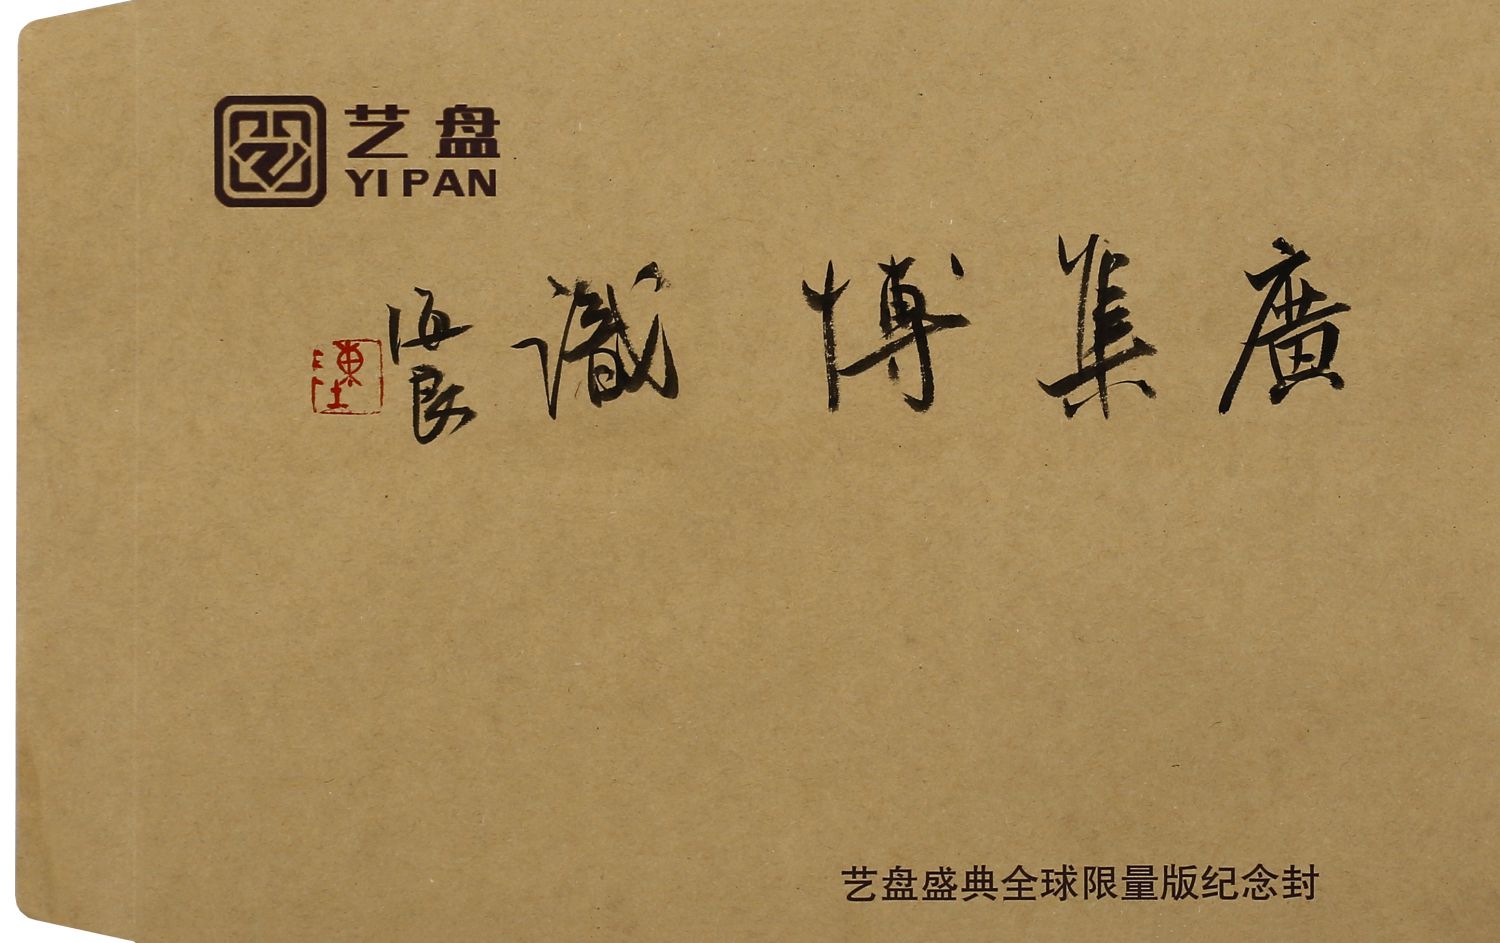 艺盘
YI PAN
廣集博識
海良
艺盘盛典全球限量版纪念封